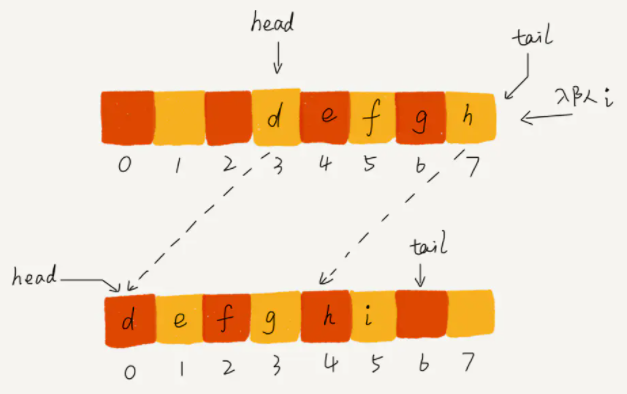 head
tail
d e f g h
入队 i
0 1 2 3 4 5 6 7
tail
head
d e f g h i
0 1 2 3 4 5 6 7